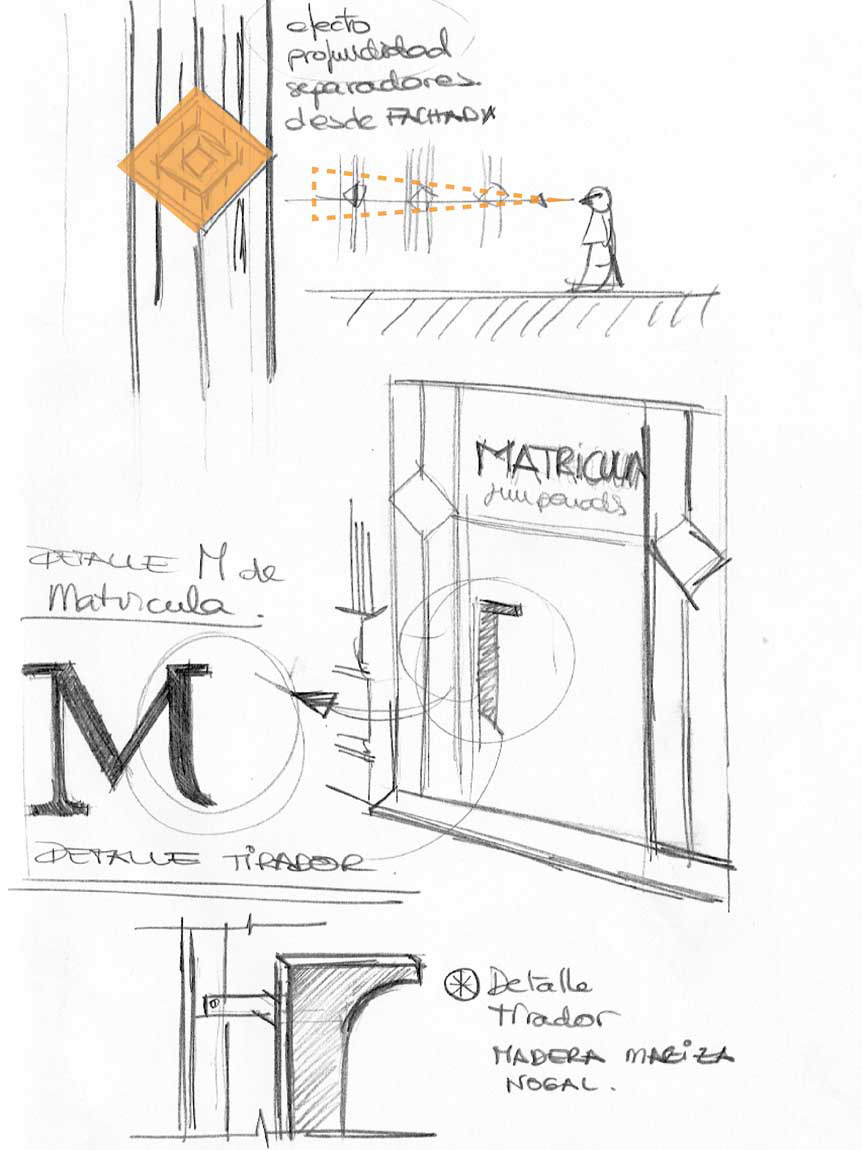 efecto
profundidad
separadores
desde FACHADA
MATRICULA
DETALLE M de
Matricula.
M
DETALLE TIRADOR.
Detalle
tirador
MADERA MACIZA
NOGAL.